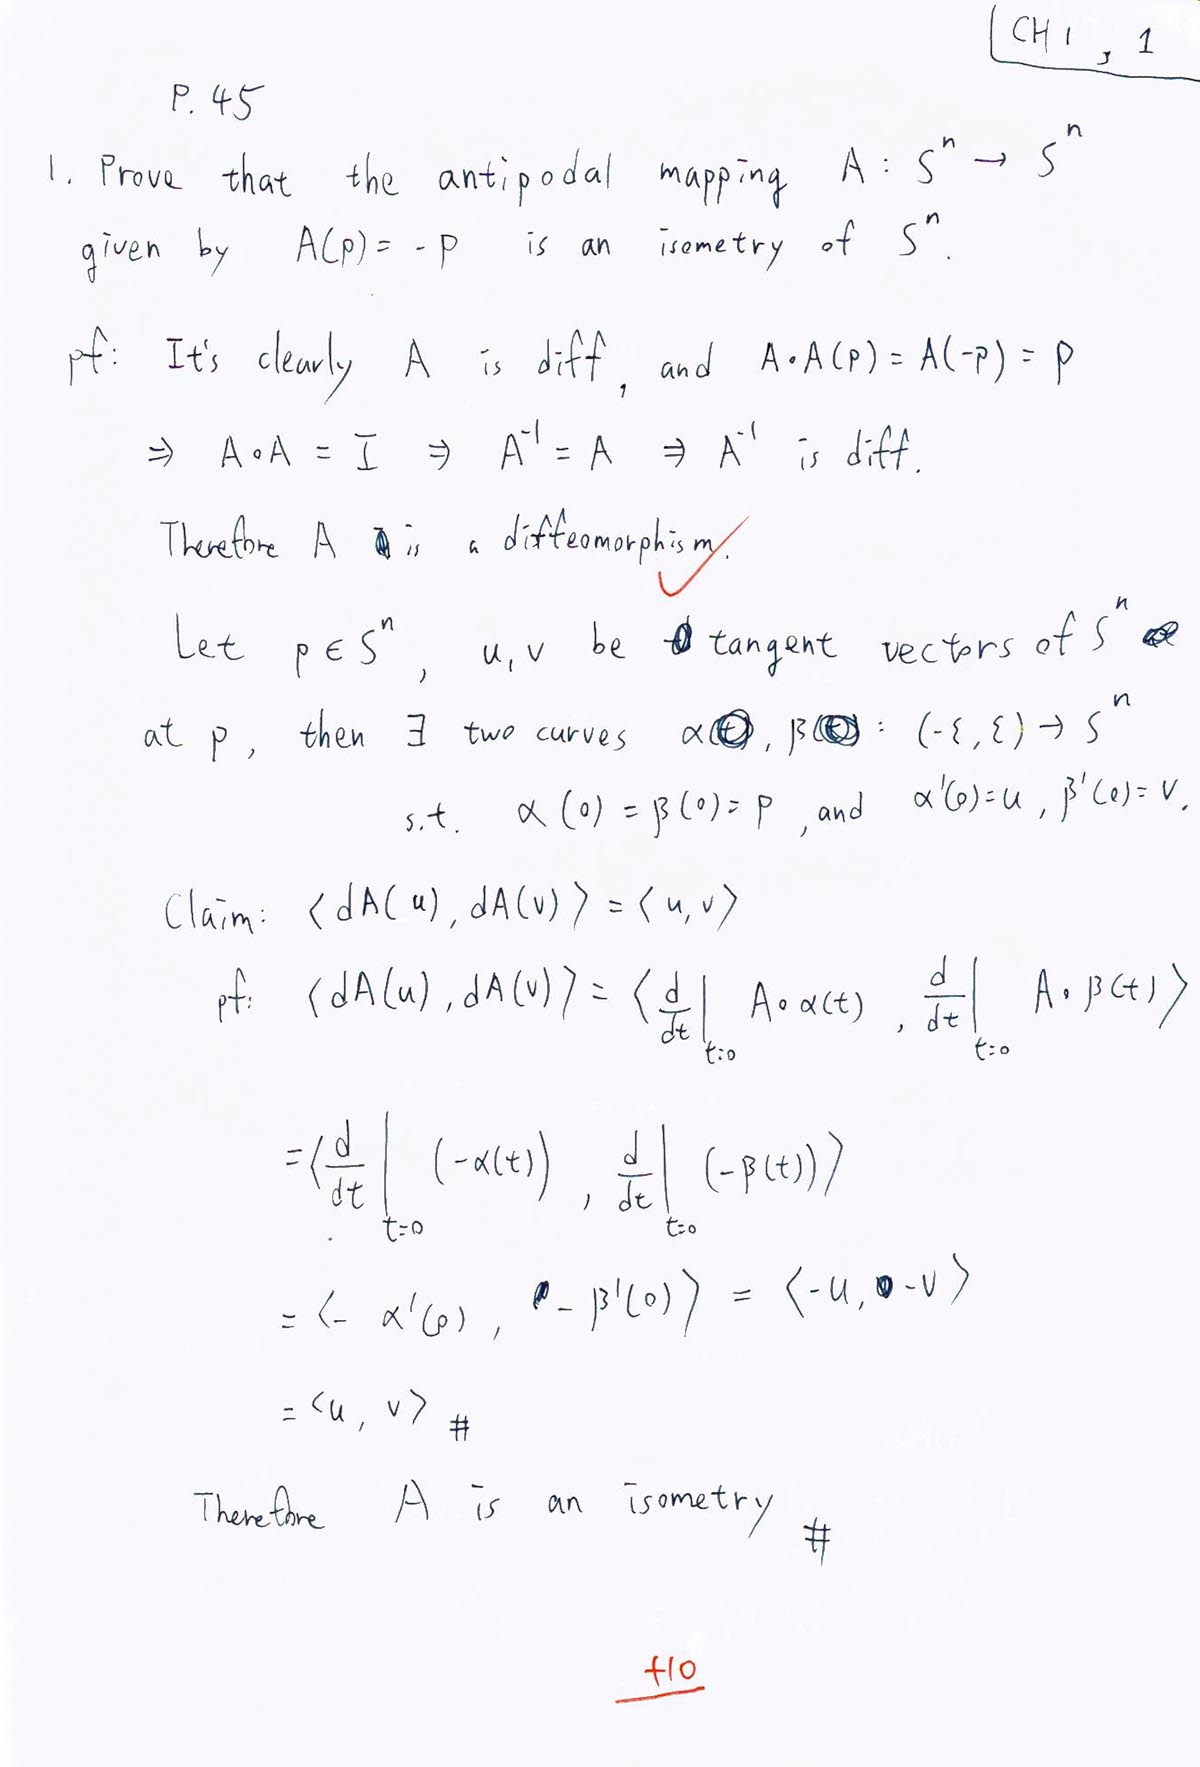 CH 1, 1
P. 45
1. Prove that the antipodal mapping A : Sⁿ → Sⁿ
given by A(p) = -p is an isometry of Sⁿ.
pf: It's clearly A is diff, and A∘A(p) = A(-p) = p
⇒ A∘A = I ⇒ A⁻¹ = A ⇒ A⁻¹ is diff.
Therefore A is a diffeomorphism.
Let p ∈ Sⁿ, u, v be tangent vectors of Sⁿ
at p, then ∃ two curves α, β : (-ε, ε) → Sⁿ
s.t. α(0) = β(0) = p, and α'(0) = u, β'(0) = v.
Claim: ⟨dA(u), dA(v)⟩ = ⟨u, v⟩
pf: ⟨dA(u), dA(v)⟩ = ⟨d/dt|t=0 A∘α(t), d/dt|t=0 A∘β(t)⟩
= ⟨d/dt|t=0 (-α(t)), d/dt|t=0 (-β(t))⟩
= ⟨-α'(0), -β'(0)⟩ = ⟨-u, -v⟩
= ⟨u, v⟩ #
Therefore A is an isometry #
+10